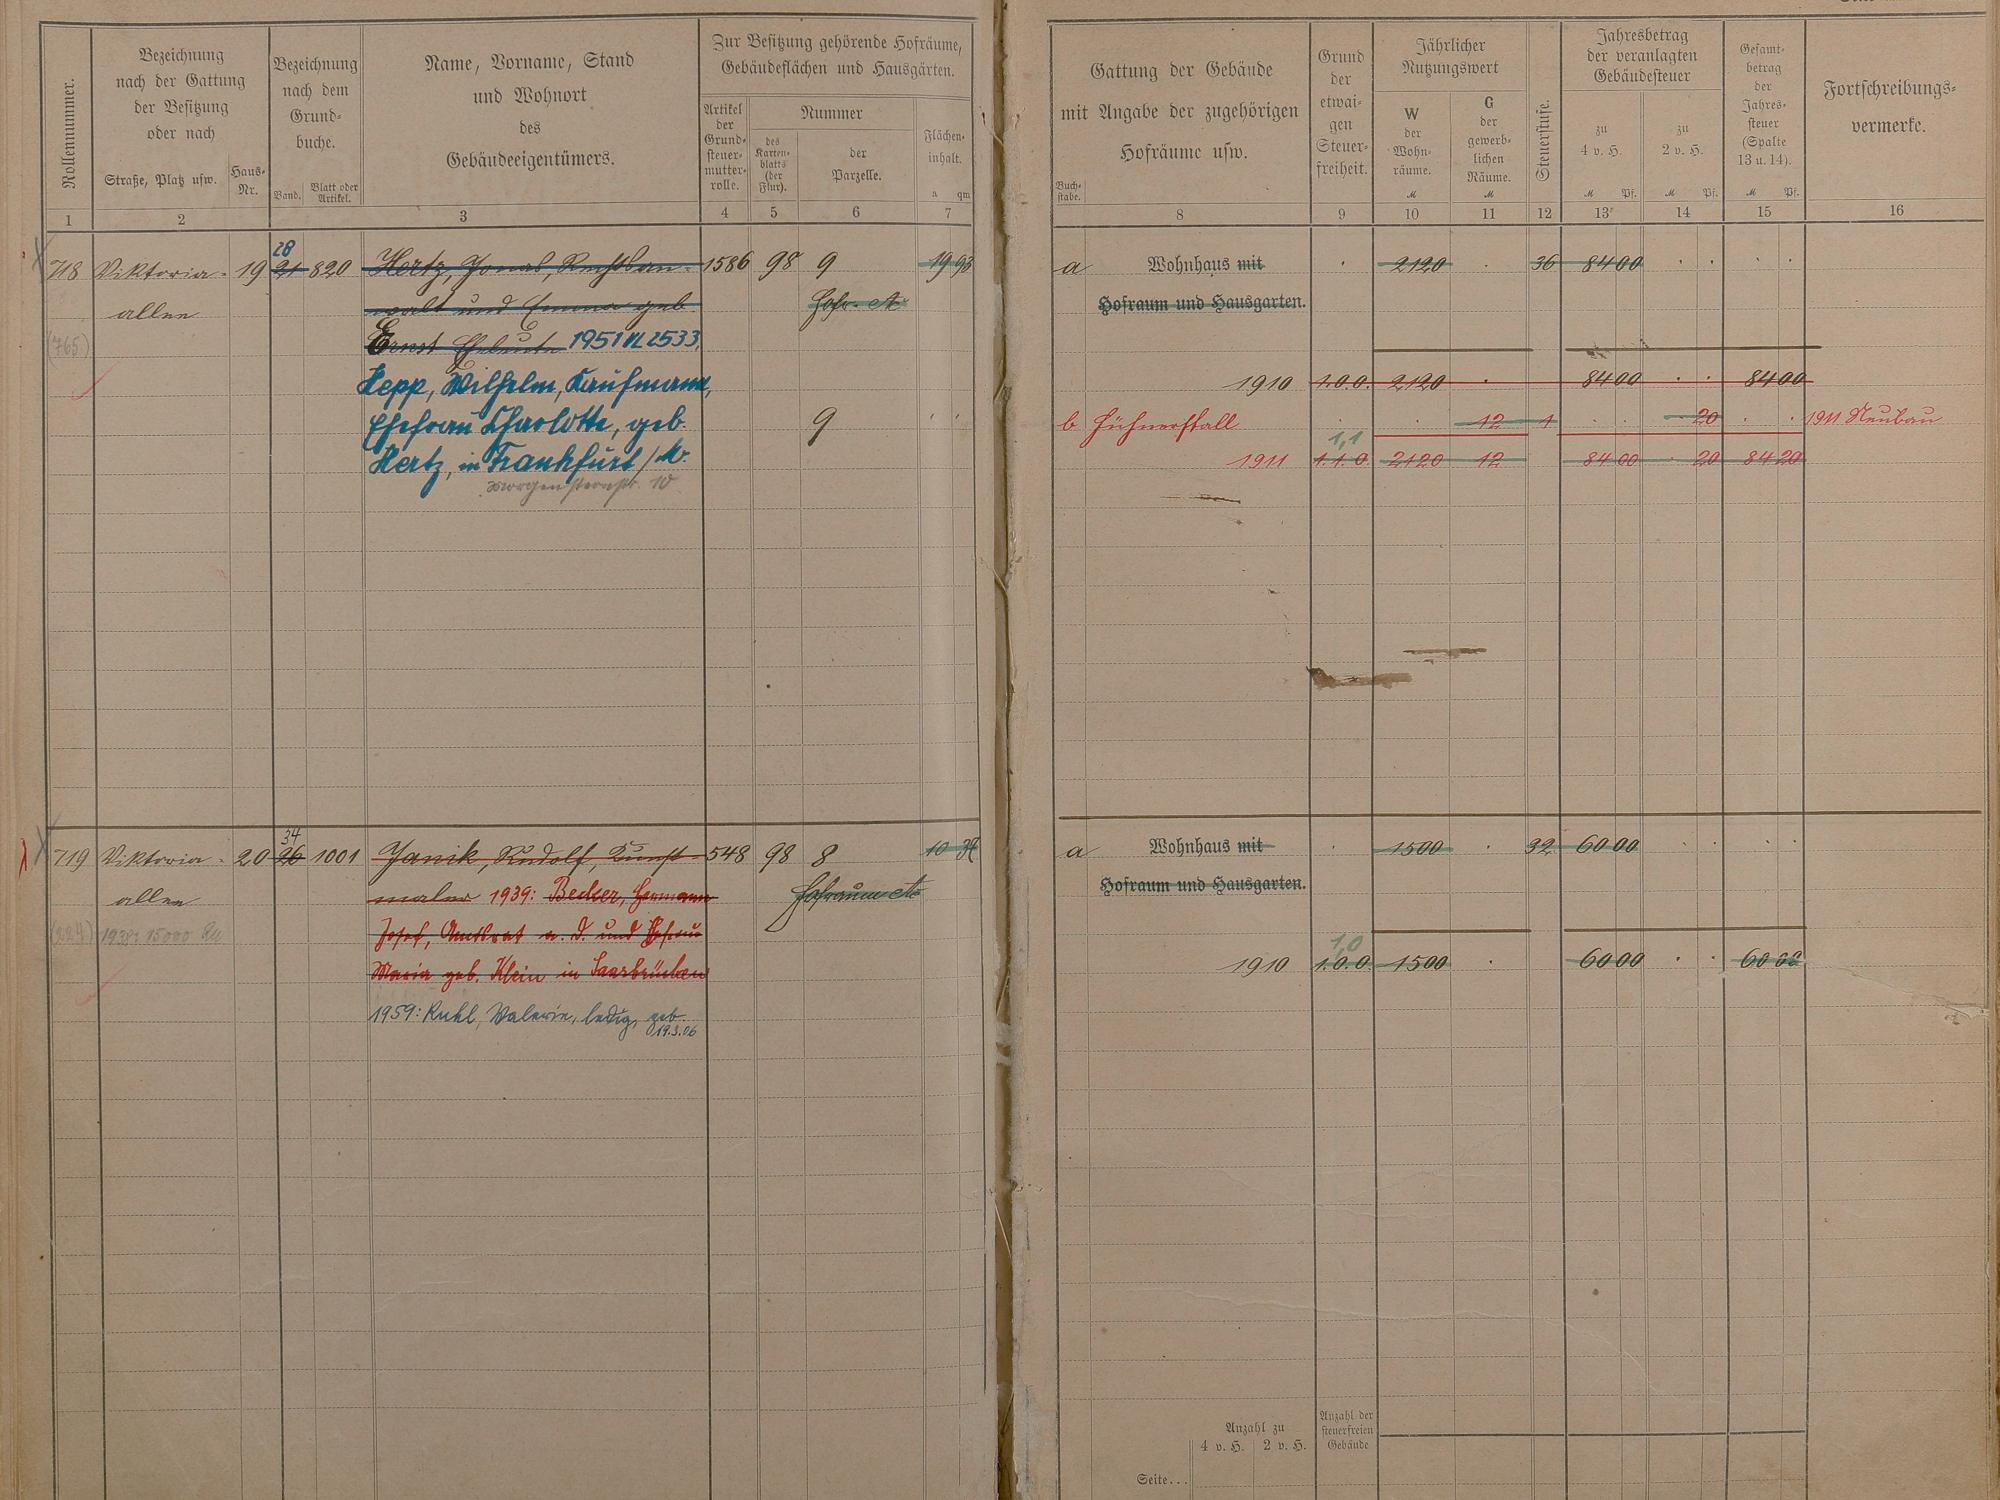 Rollennummer.
Bezeichnung
nach der Gattung
der Besitzung
oder nach
Straße, Platz usw.
Haus-
Nr.
Bezeichnung
nach dem
Grund-
buche.
Band.
Blatt oder
Artikel.
Name, Vorname, Stand
und Wohnort
des
Gebäudeeigentümers.
Zur Besitzung gehörende Hofräume,
Gebäudeflächen und Hausgärten.
Artikel
der
Grund-
steuer-
mutter-
rolle.
Nummer
des
Karten-
blatts
(der
Flur).
der
Parzelle.
Flächen-
inhalt.
a qm
1 2 3 4 5 6 7
28
718 Viktoria- 19 21 820 Hertz, Jonas, Rechtsan- 1586 98 9 19 93
allee walt und Emma geb. Hofr. etc
(765) Ernst Eheleute 1951 VL 2533.
Hepp, Wilhelm, Kaufmann,
Ehefrau Charlotte, geb. 9
Hertz, in Frankfurt / M.
Morgensternstr. 10
34
719 Viktoria- 20 26 1001 Janik, Rudolf, Kunst- 548 98 8 10
allee maler 1939: Becker, Hermann Hofraum etc
(224) 1938: 15000 Josef, Amtsrat a. D. und Ehefrau
Maria geb. Klein in Saarbrücken
1959: Ruhl, Valerie, ledig, geb.
19.3.06
Gattung der Gebäude
mit Angabe der zugehörigen
Hofräume usw.
Buch-
stabe.
Grund
der
etwai-
gen
Steuer-
freiheit.
Jährlicher
Nutzungswert
W
der
Wohn-
räume.
M
G
der
gewerb-
lichen
Räume.
M
Steuerstufe.
Jahresbetrag
der veranlagten
Gebäudesteuer
zu
4 v. H.
M Pf.
zu
2 v. H.
M Pf.
Gesamt-
betrag
der
Jahres-
steuer
(Spalte
13 u. 14).
M Pf.
Fortschreibungs-
vermerke.
8 9 10 11 12 13 14 15 16
a Wohnhaus mit · 2120 · 36 84 00 · · · ·
Hofraum und Hausgarten.
1910 1.0.0. 2120 · 84 00 · · 84 00
b Hühnerstall · · 12 1 · · · 20 · · 1911 Neubau
1,1
1911 1.1.0. 2120 12 84 00 · 20 84 20
a Wohnhaus mit · 1500 · 32 60 00 · · · ·
Hofraum und Hausgarten.
1,0
1910 1.0.0. 1500 · 60 00 · · 60 00
Anzahl zu
4 v. H. 2 v. H.
Anzahl der
steuerfreien
Gebäude
Seite...